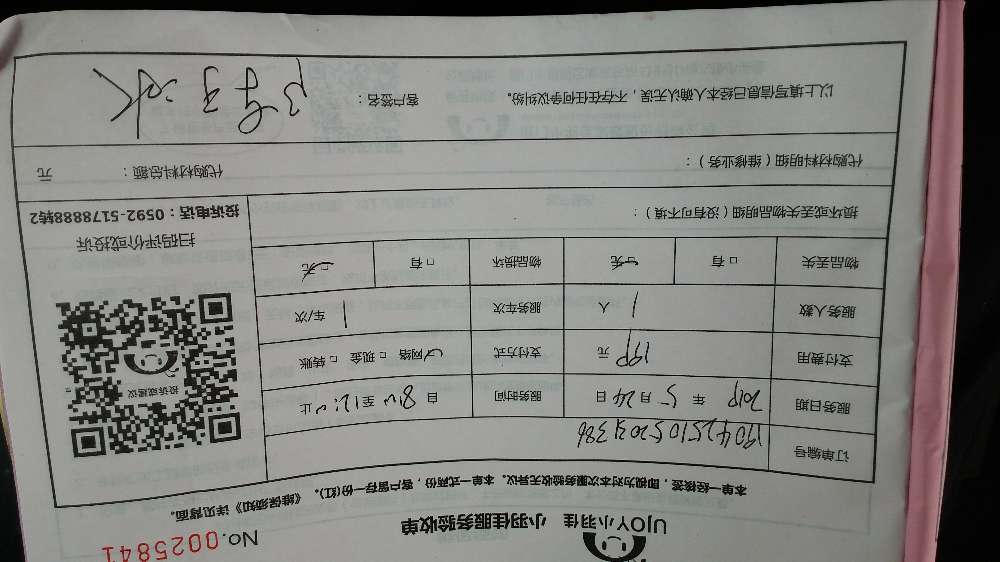 UJOY小羽佳 小羽佳服务验收单
No.0025841
本单一经核签，即视为对本次服务验收无异议。本单一式两份，客户留存一份(红)。《维保须知》详见背面。
订单编号
服务日期 2019 年 5 月 24 日 服务时间 自 8:00 至 12:00 止
支付费用 199 元 支付方式 ☑网络 □现金 □转账
服务人数 1 人 服务车次 1 车/次
物品丢失 □有 ☑无 物品损坏 □有 ☑无
投诉或建议
扫码评价或投诉
投诉电话：0592-5178888转2
损坏或丢失物品明细（没有可不填）：
代购材料明细（维修业务）：
代购材料总额： 元
以上填写信息已经本人确认无误，不存在任何争议纠纷。 客户签名：